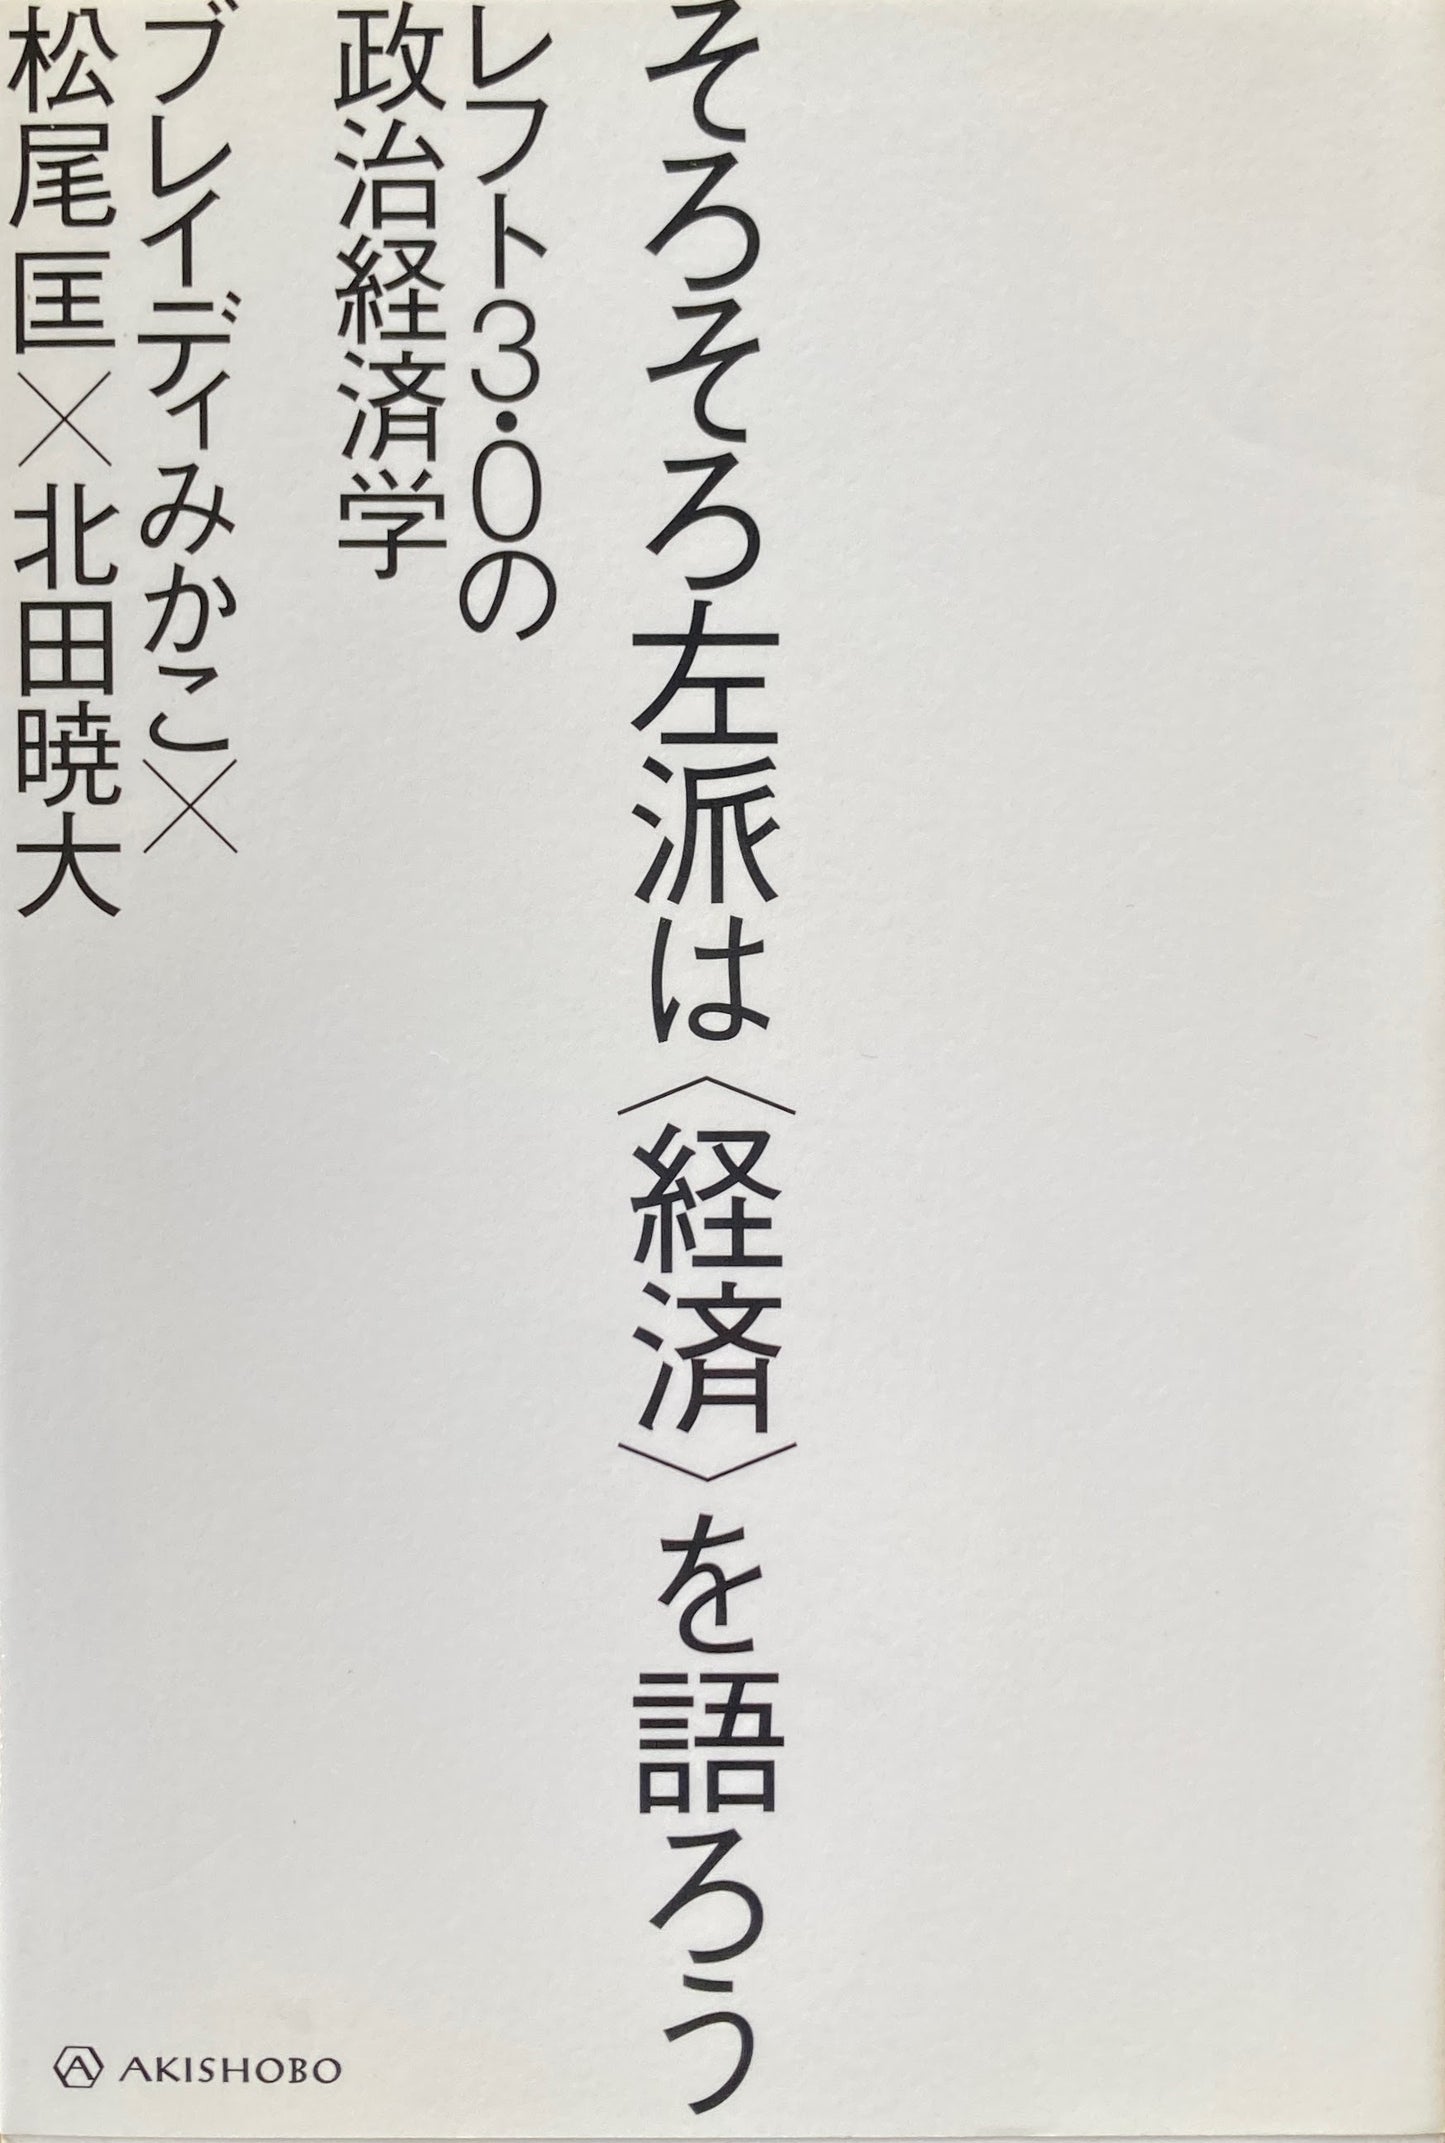 そろそろ左派は〈経済〉を語ろう
レフト3.0の
政治経済学
ブレイディみかこ×
松尾匡×北田暁大
AKISHOBO